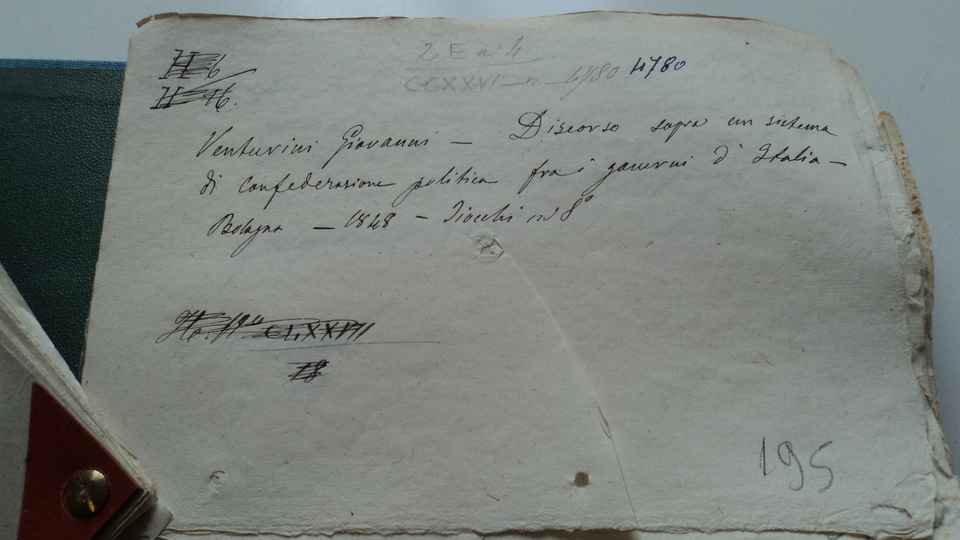 2 E n. 4
CCXXVI — n. 4780 4780
H b
H 16.
Venturini Giovanni — Discorso sopra un sistema
di confederazione politica fra i governi d'Italia —
Bologna — 1848 — Tiocchi in 8°
CLXXVII
18
195